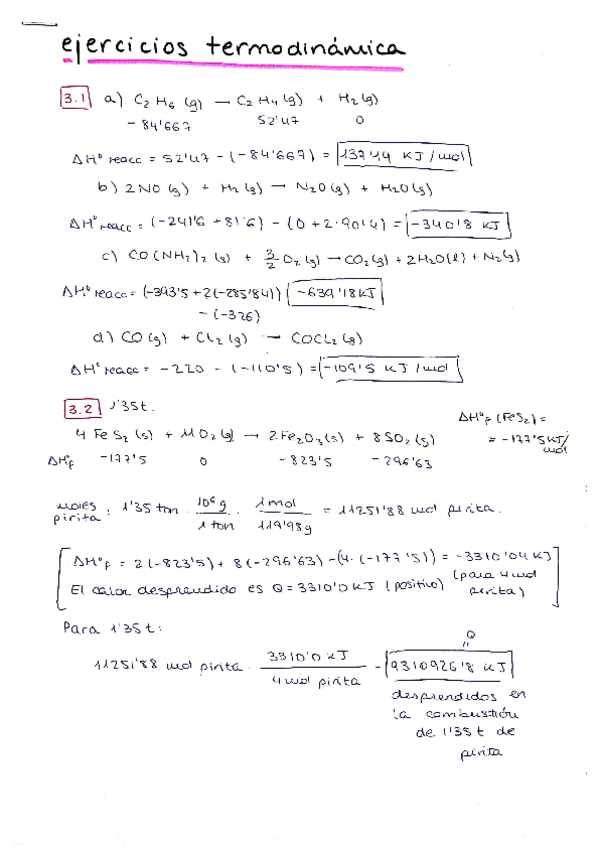 ejercicios termodinámica
3.1 a) C2H6 (g) → C2H4 (g) + H2 (g)
-84'667 52'47 0
ΔHº reacc = 52'47 - (-84'667) = 137'14 KJ/mol
b) 2NO (g) + H2 (g) → N2O (g) + H2O (g)
ΔHº reacc = (-241'6 + 81'6) - (0 + 2·90'4) = -340'8 KJ
c) CO(NH2)2 (s) + 3/2 O2 (g) → CO2 (g) + 2H2O (l) + N2 (g)
ΔHº reacc = (-393'5 + 2(-285'84)) -639'18 KJ
- (-326)
d) CO (g) + Cl2 (g) → COCl2 (g)
ΔHº reacc = -220 - (-110'5) = -109'5 KJ/mol
3.2 1'35t.
ΔHºF (FeS2) =
= -177'5 KJ/mol
4 FeS2 (s) + 11O2 (g) → 2Fe2O3 (s) + 8SO2 (s)
ΔHºF -177'5 0 -823'5 -296'63
moles pirita: 1'35 ton · 10⁶ g / 1 ton · 1 mol / 119'98g = 11251'88 mol pirita.
ΔHºF = 2(-823'5) + 8(-296'63) - (4·(-177'5)) = -3310'04 KJ
El calor desprendido es Q = 3310'0 KJ (positivo) (para 4 mol pirita)
Para 1'35t:
Q
11251'88 mol pirita · 3310'0 KJ / 4 mol pirita = 9310926'8 KJ
desprendidos en
la combustión
de 1'35 t de
pirita